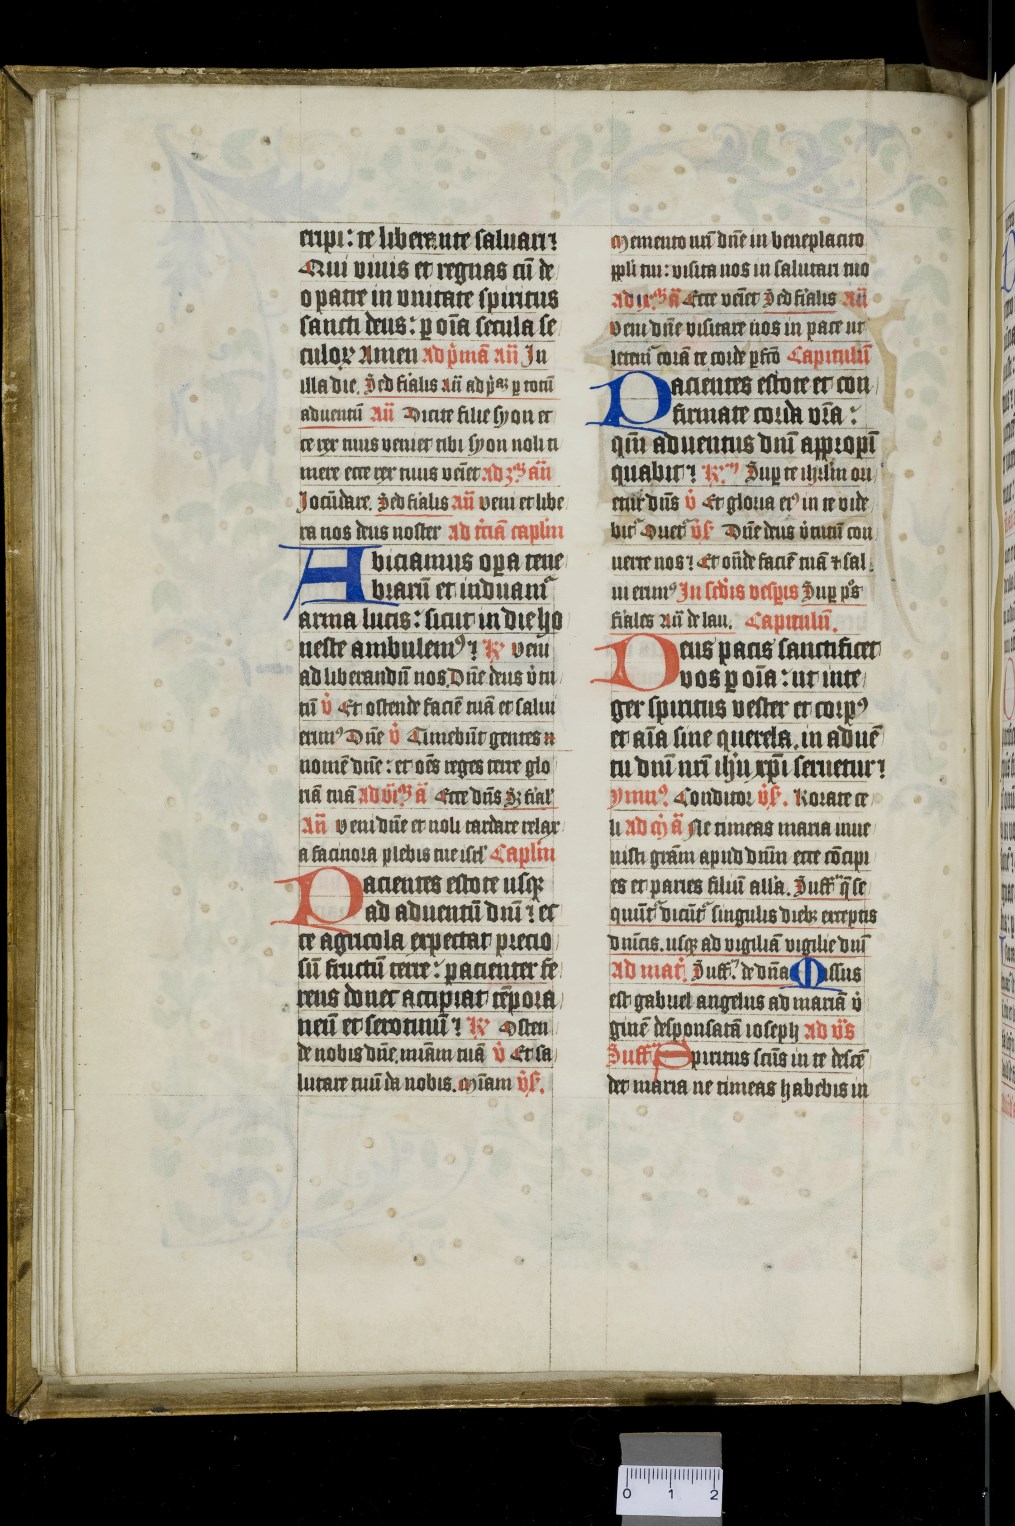 eripi: te liberante saluari?
Qui viuis et regnas cū de
o patre in vnitate spiritus
sancti deus: p oīa secula se
culoꝝ Amen Ad p̄mā an̄ In
illa die. Sed fīalis an̄ ad p̄as p totū
aduentū An̄ Dicite filie syon et
ce rex tuus veniet tibi syon noli ti
mere ecce rex tuus vēiet Ad ʒas an̄
Jocūdare. Sed fīalis An̄ veni et libe
ra nos deus noster Ad t̄ciā caplm̄
Abiciamus opa tene
brarū et induamr̄
arma lucis: sicut in die ho
neste ambulemꝰ? ℟ veni
ad liberandū nos. Dn̄e deus v̇tu
tū v̇ Et ostende faciē tuā et salui
erimꝰ Dn̄e v̇ Timebūt gentes n
nomē dn̄e: et oēs reges terre glo
riā tuā Ad vīas ā Ecce dn̄s Sʒ fīal
An̄ veni dn̄e et noli tardare relax
a facinora plebis tue isrl̄ Caplm̄
Pacientes estote usqꝫ
ad aduentū dn̄i? ec
ce agricola expectat precio
sū fructū terre: pacienter fe
rens donec accipiat tēpora
neū et serotinū? ℟ Osten
de nobis dn̄e. miām tuā v̇ Et sa
lutare tuū da nobis. Mīam v̇s.
Memento nr̄i dn̄e in beneplacito
ppl̄i tui: visita nos in salutari tuo
Ad ixas ā Ecce vēiet Sed fīalis An̄
veni dn̄e visitare nos in pace ut
letemr̄ corā te corde pfc̄o Capitulū
Pacientes estote et con
firmate corda vr̄a:
qm̄ aduentus dn̄i appropī
quabit? ℟ Sup te ihrlm̄ ori
etur dn̄s v̇ Et gloria eiꝰ in te vide
bitr̄ Orietr̄ v̇s Dn̄e deus v̇tutū con
uerte nos? Et on̄de faciē tuā ⁊ sal
ui erimꝰ In scd̄is vespis Sup ps̄
fīales an̄ de lau. Capitulū.
Deus pacis sanctificet
vos p oīa: ut inte
ger spiritus vester et corpꝰ
et aīa sine querela. in aduē
tu dn̄i nr̄i ih̄u xp̄i seruetur?
ymnꝰ. Conditor v̇s. Rorate ce
li Ad m̄ ā Ne timeas maria inue
nisti grām apud dn̄m ecce cōcipi
es et paries filiū all̄a. Suff̄ q̄ se
quūtr̄ dicūtr̄ singulis diebꝫ exceptis
dn̄icis. usqꝫ ad vigiliā vigilie dn̄i
Ad mat̄. Suff̄. de dn̄a Missus
est gabriel angelus ad mariā v̇
ginē desponsatā ioseph ad v̄s
Suff̄ Spiritus scūs in te descē
det maria ne timeas habebis in
0 1 2